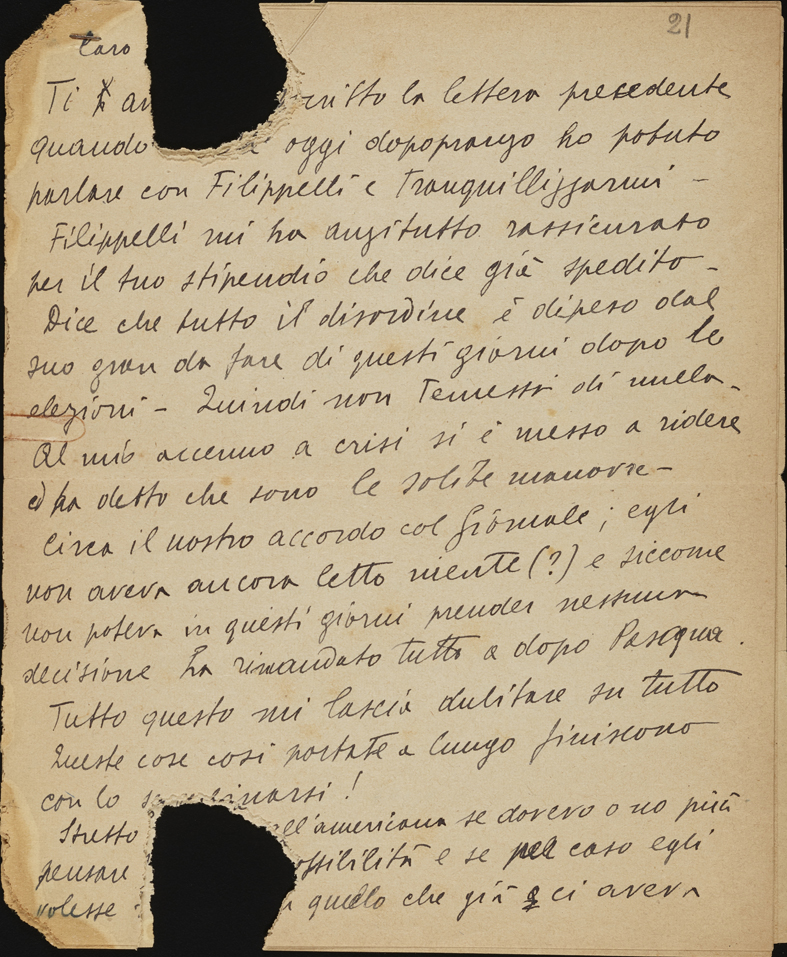 21
Caro
Ti scritto la lettera precedente
quando oggi dopopranzo ho potuto
parlare con Filippelli e Tranquillizzarmi –
Filippelli mi ha anzitutto rassicurato
per il tuo stipendio che dice già spedito –
Dice che tutto il disordine è dipeso dal
suo gran da fare di questi giorni dopo le
elezioni – Quindi non Temessi di nulla –
Al mio accenno a crisi si è messo a ridere
ed ha detto che sono le solite manovre –
Circa il nostro accordo col Giornale ; egli
non aveva ancora letto niente (?) e siccome
non poteva in questi giorni prender nessuna
decisione ha rimandato tutto a dopo Pasqua .
Tutto questo mi lascia dubitare su tutto
Queste cose così portate a lungo finiscono
con lo !
Stretto ell'americana se dovevo o no più
pensare ossibilità e se pel caso egli
volesse quello che già ci aveva